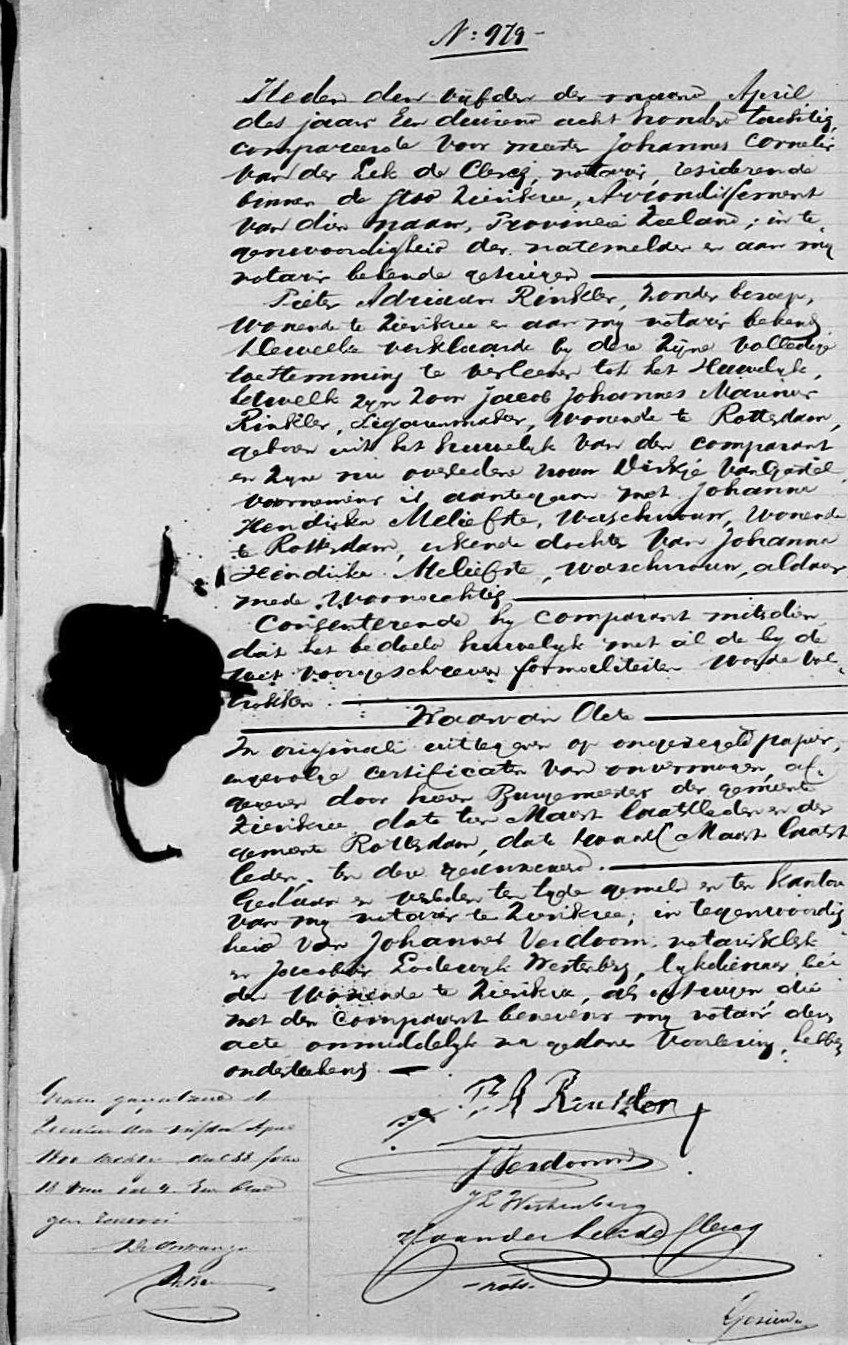 N: 979 -
Heden den vijfden der maand April
des jaars Een duizend acht honderd tachtig,
compareerde voor meester Johannes Cornelis
van der Lek de Clercq, notaris, residerende
binnen de stad Zierikzee, Arrondissement
van dien naam, Provincie Zeeland; in te-
genwoordigheid der natemelden en aan my
notaris bekende getuigen
Pieter Adriaan Rinkler, zonder beroep,
wonende te Zierikzee en aan my notaris bekend
Dewelke verklaarde by deze zijne volledige
toestemming te verleenen tot het Huwelyk,
hetwelk zyn zoon Jacob Johannes Marinus
Rinkler, Sigarenmaker, wonende te Rotterdam,
geboren uit het huwelyk van den comparant
en zyne nu overledene vrouw Dirkje van Gastel
voornemens is aantegaan met Johanna
Hendrika Meliefste, waschvrouw, wonende
te Rotterdam, erkende dochter van Johanna
Hendrika Meliefste, waschvrouw, aldaar
mede woonachtig
Consenterende hy comparant mitsdien
dat het bedoeld huwelyk met al de by de
wet voorgeschreven formaliteiten worde vol-
trokken.
Waarvan Acte
In originali uittegeven op ongezegeld papier,
ingevolge certificaten van onvermogen, af-
gegeven door heeren Burgemeesters der gemeente
Zierikzee, dato tien Maart laatstleden en der
gemeente Rotterdam, dato twaalf Maart laatst
leden, ten deze geannexeerd.
Gedaan en verleden ten tyde gemeld en ten kantore
van my notaris te Zierikzee, in tegenwoordig
heid van Johannes Verdoorn, notarisklerk
en Jacobus Lodewyk Westenberg, lykdienaar, bei
den wonende te Zierikzee, als getuigen, die
met den comparant benevens my notaris deze
acte onmiddelyk na gedane voorlezing, hebben
onderteekend.
P A Rinkler
J Verdoorn
J L Westenberg
van der Lek de Clercq
- nots.
Gratis geregistreerd te
Zierikzee den vijfden April
1800 tachtig, deel 88 folio
een blad
geen renvooi
De Ontvanger
Gezien